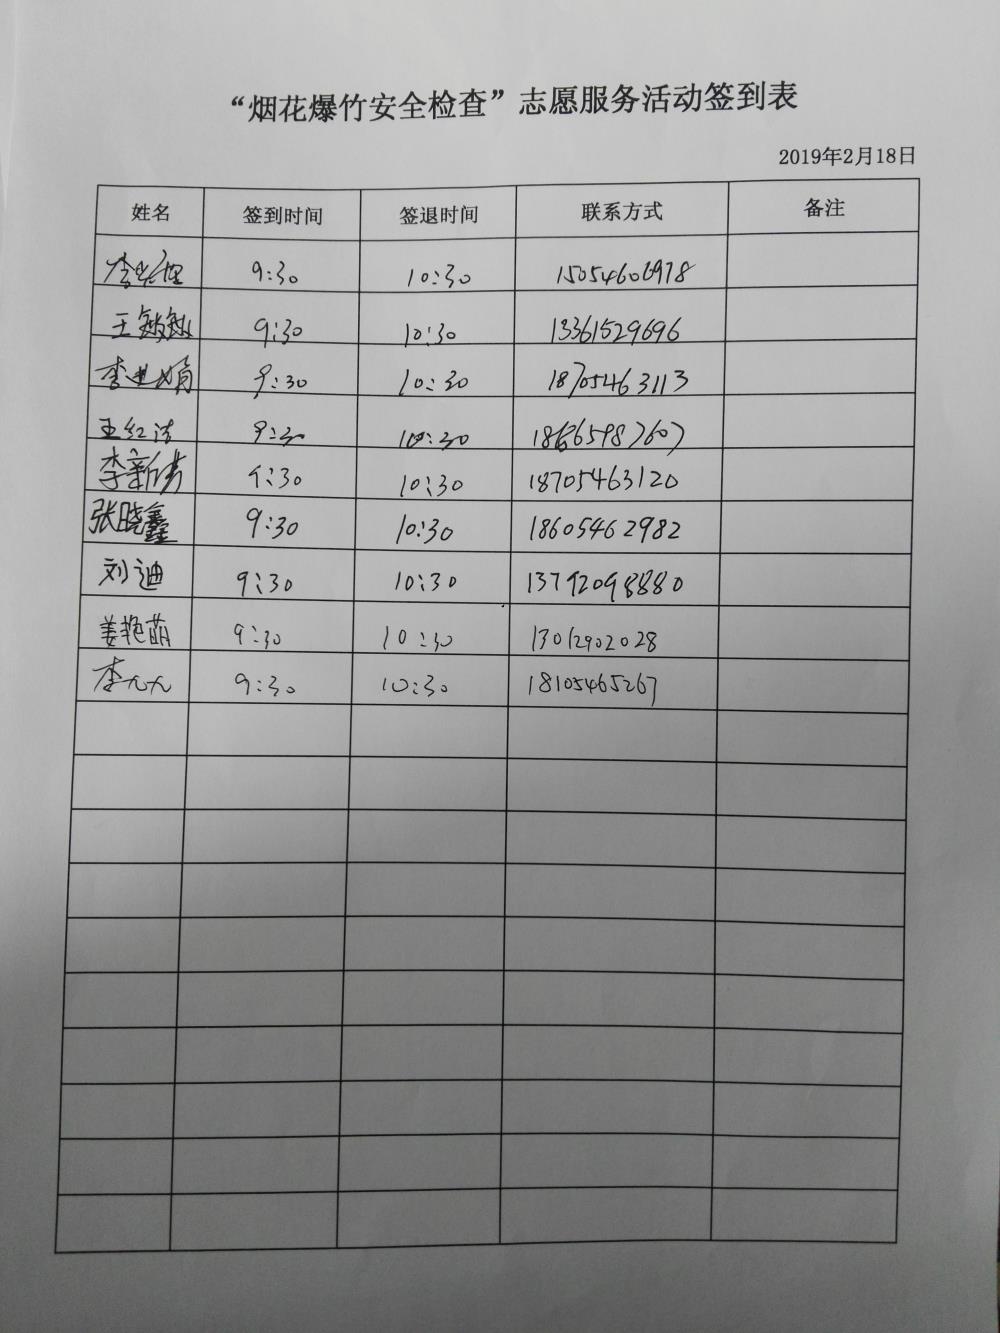 “烟花爆竹安全检查”志愿服务活动签到表
2019年2月18日
姓名 签到时间 签退时间 联系方式 备注
9:30 10:30 15054606978
王敏敏 9:30 10:30 13361529696
李 娟 9:30 10:30 18705463113
王红洁 9:30 10:30
李新倩 9:30 10:30 18705463120
张晓鑫 9:30 10:30 18605462982
刘迪 9:30 10:30 13792098880
姜艳萌 9:30 10:30 13012902028
李 9:30 10:30 18105465267